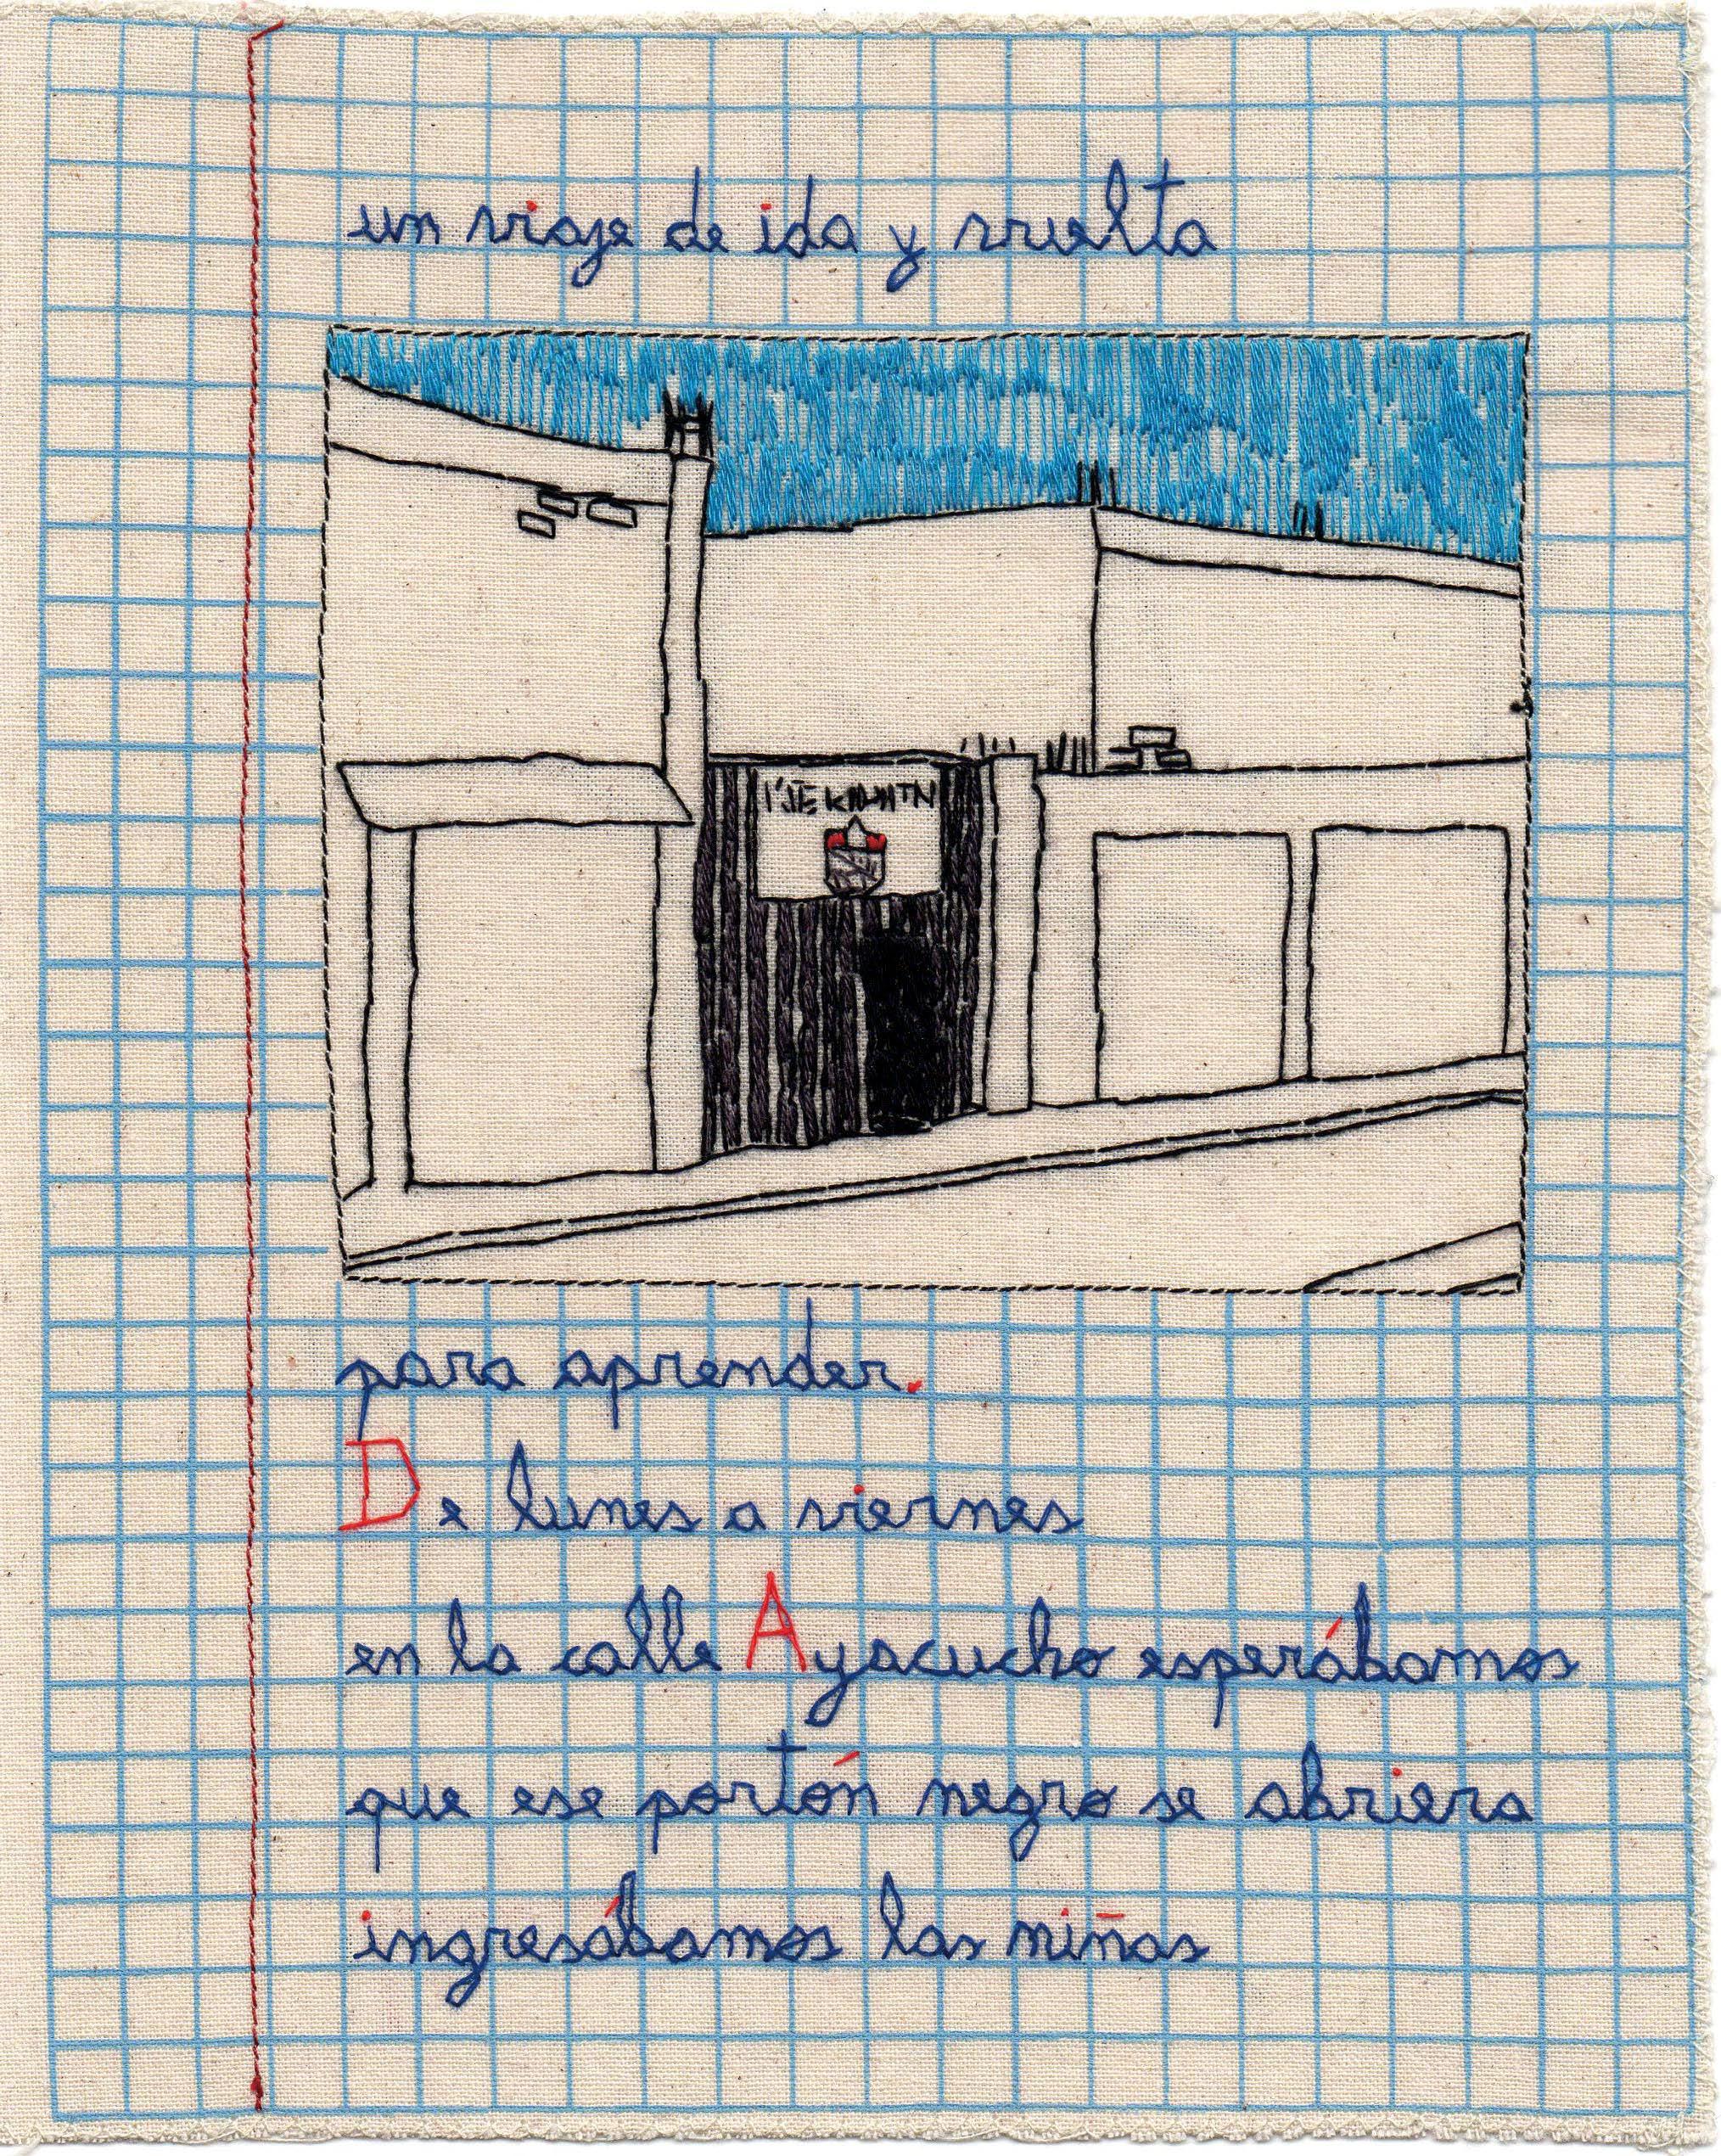 un viaje de ida y vuelta
para aprender.
De lunes a viernes
en la calle Ayacucho esperábamos
que ese portón negro se abriera
ingresábamos las niñas